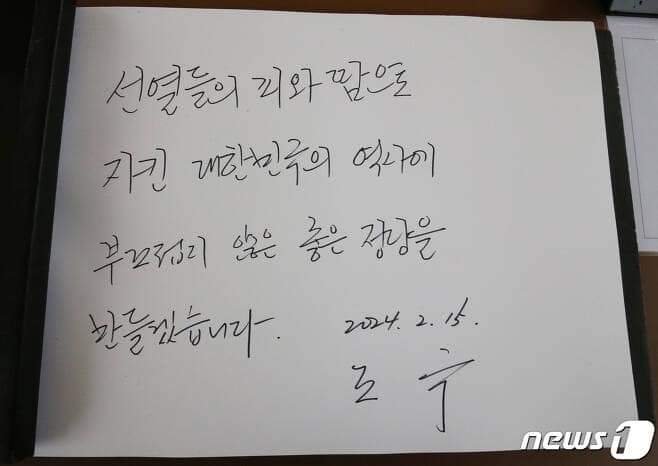 선열들의 피와 땀으로
지킨 대한민국의 역사에
부끄럽지 않은 좋은 정당을
만들겠습니다.
2024. 2. 15.
조 국
news1